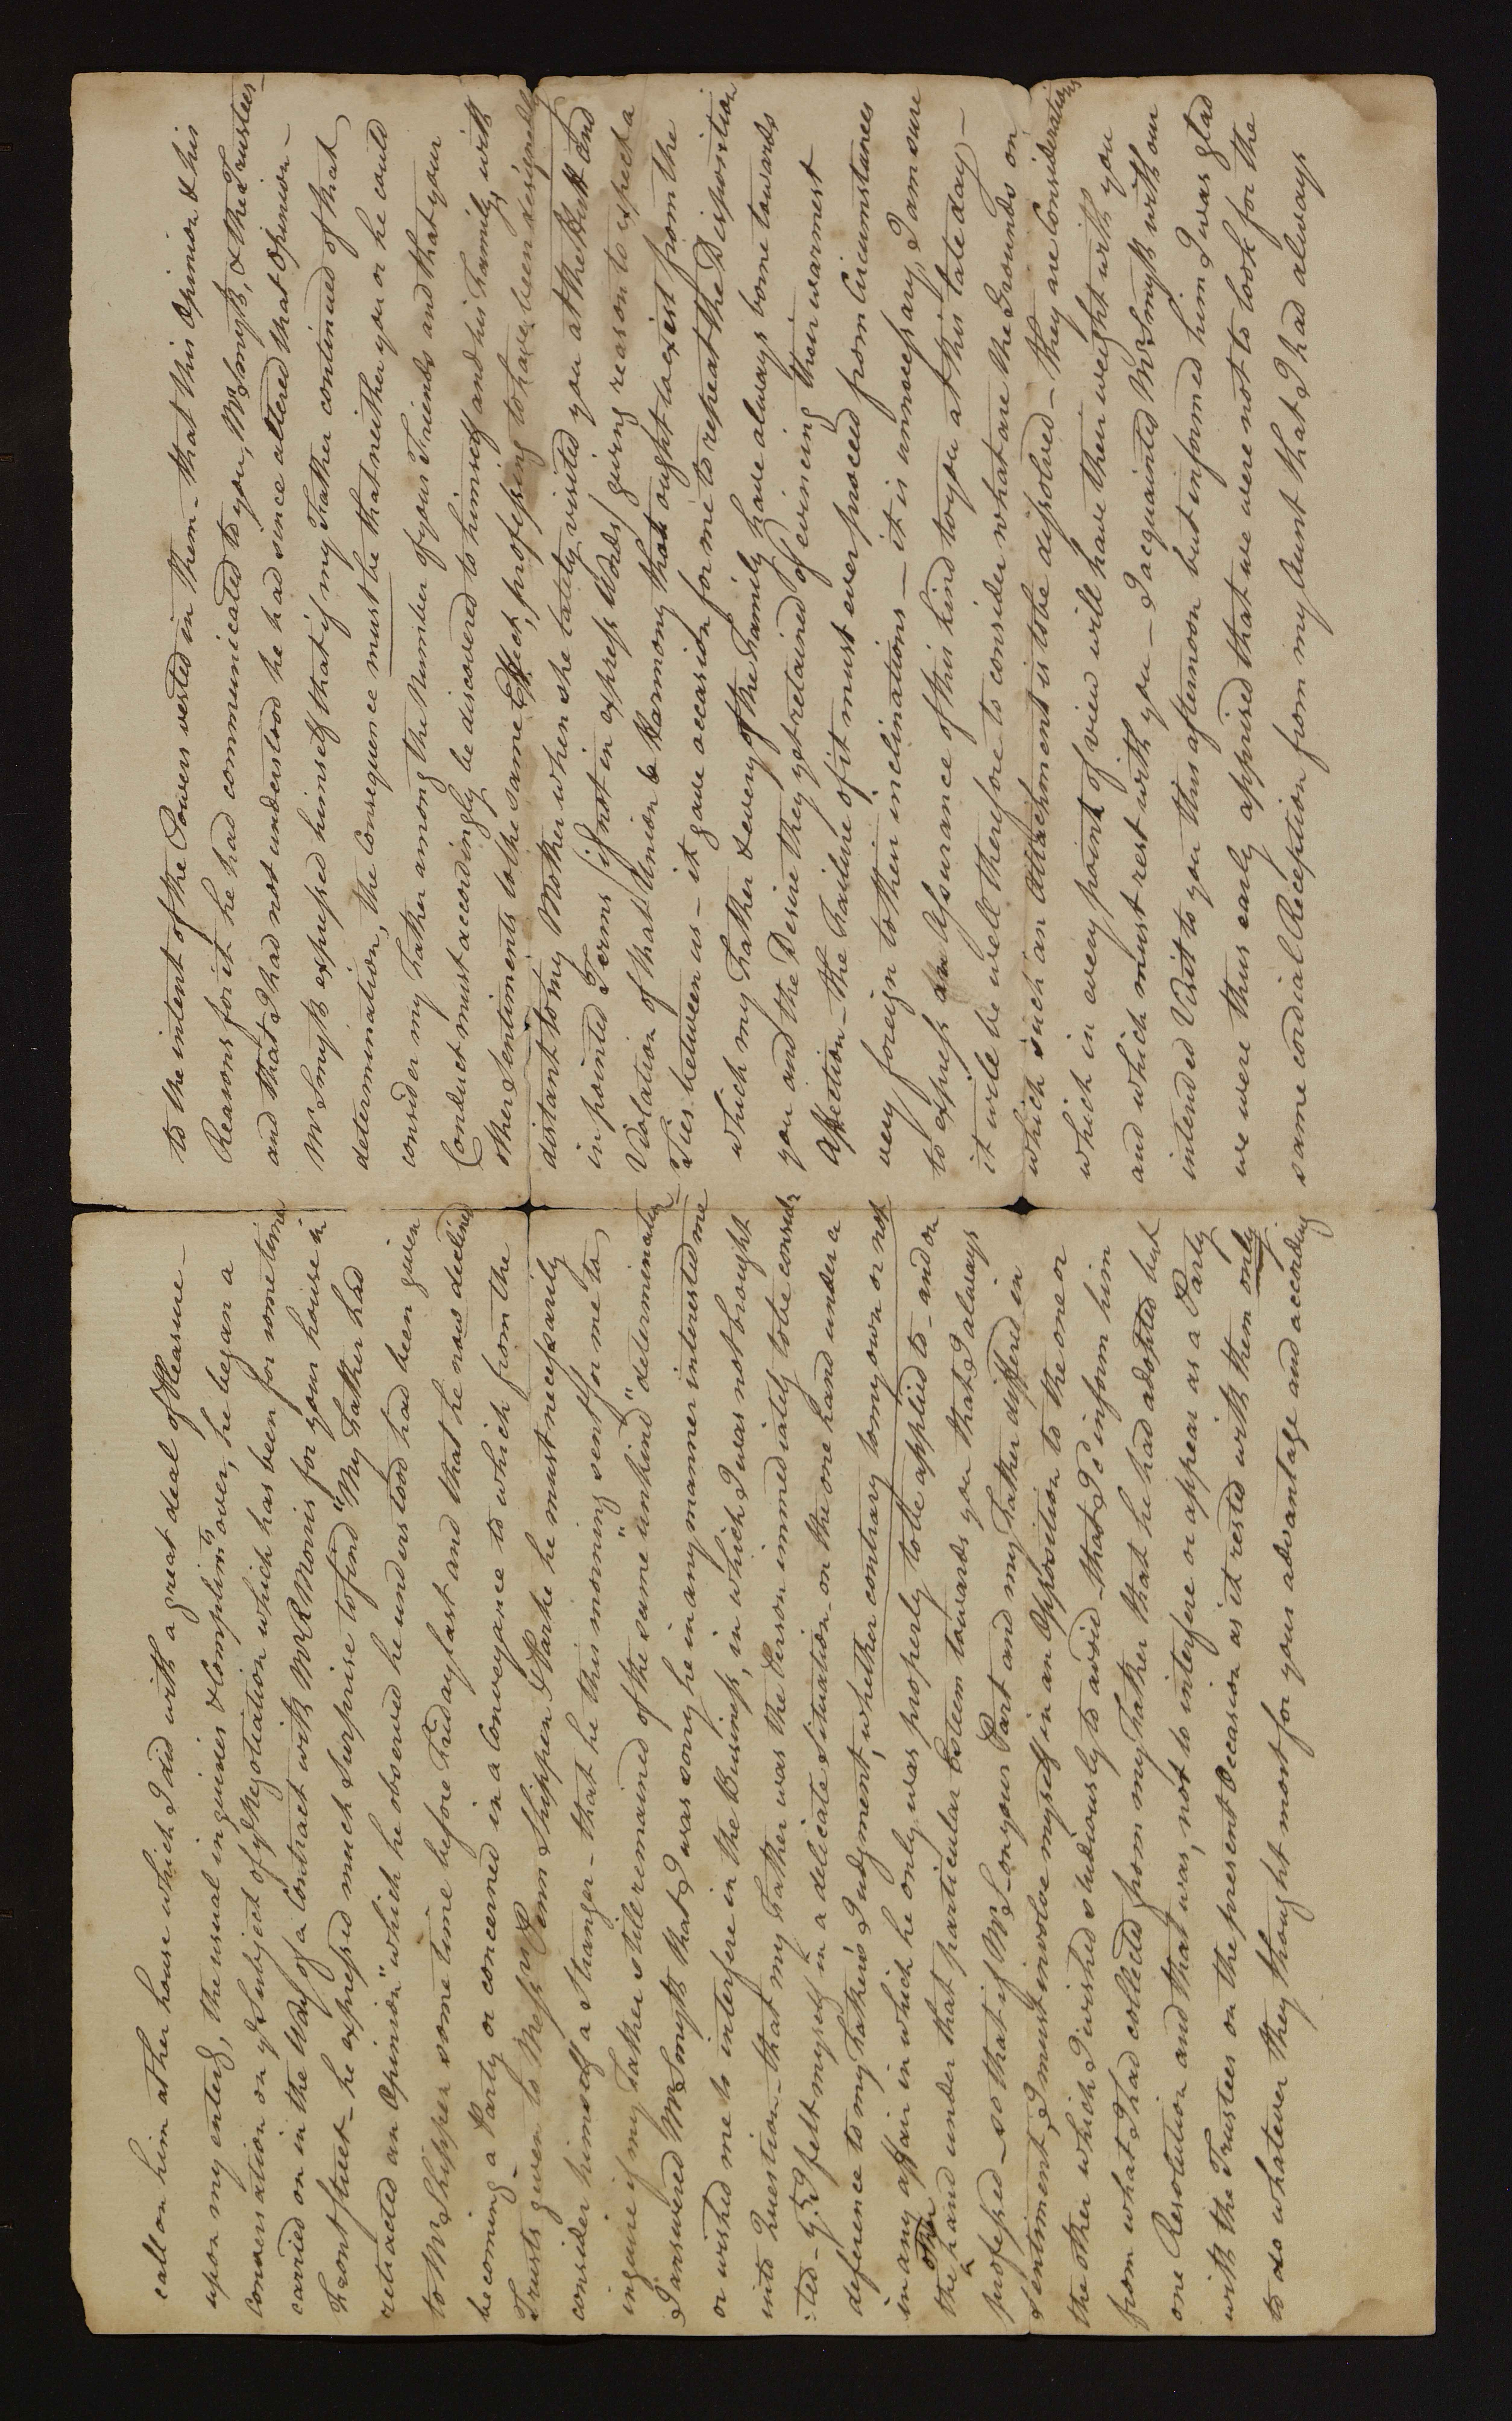 call on him at her house which I did with a great deal of Pleasure —
upon my enterg, the usual inquiries & Complimts over, he began a
Conversation on ye Subject of ye Negotiation which has been for some time
carried on in the Way of a Contract with Mr R Morris for your house in
Front street — he expressed much Surprise to find "My Father had
retracted an Opinion" which he observed he understood had been given
to Mr Shippen some time before Friday last and that he now declined
becoming a Party or concerned in a Conveyance to which from the
Trusts given to Messrs Penn Shippen & Parke he must necessarily
consider himself a Stranger — that he this morning sent for me to
inquire if my Father still remained of the same "unkind" determination —
I answered Mr Smyth that I was sorry he in any manner interested me
or wished me to interfere in the Business, in which I was not brought
into Question — that my Father was the Person immediately to be consider
:ted — yt I felt myself in a delicate Situation — on the one hand under a
deference to my Father's Judgment, whether contrary to my own or not
in any affair in which he only was properly to be applied to — and on
the other hand under that particular Esteem towards you that I always
professed — so that if Mr S — on your Part and my Father differed in
Sentiment, I must involve myself in an Opposition to the one or
the other which I wished studiously to avoid — that I'd inform him
from what I had collected from my Father that he had adopted but
one Resolution and that was, not to interfere or appear as a Party
with the Trustees on the present Occasion as it rested with them only
to do whatever they thought most for your advantage and according
to the intent of the Powers vested in them — that this Opinion & his
Reasons for it he had communicated to you, Mr Smyth, & the Trustees —
and that I had not understood he had since altered that Opinion —
Mr Smyth expressed himself that if my Father continued of that
determination, the Consequence must be that neither you or he could
consider my Father among the Number of your Friends and that your
Conduct must accordingly be discovered to himself and his Family, with
other Sentiments to the same Effect, professing to have been designedly
distant to my Mother when she lately visited you at the Bush and
in pointed Terms (if not in express Words) giving reason to expect a
Violation of that Union & Harmony that ought to exist from the
Ties between us — it gave occasion for me to repeat the Disposition
which my Father & every of the Family have always borne towards
you and the Desire they yet retained of evincing their warmest
Affection — the Failure of it must ever proceed from Circumstances
very foreign to their inclinations — it is unnecessary, I am sure
to express an Assurance of this kind to you at this late day —
it will be well therefore to consider what are the Grounds on
which such an Attachment is to be dissolved — they are Considerations
which in every point of view will have their weight with you
and which must rest with you — I acquainted Mr Smyth with our
intended Visit to you this afternoon but informed him I was glad
we were thus early apprised that we were not to look for the
same cordial Reception from my Aunt that I had always